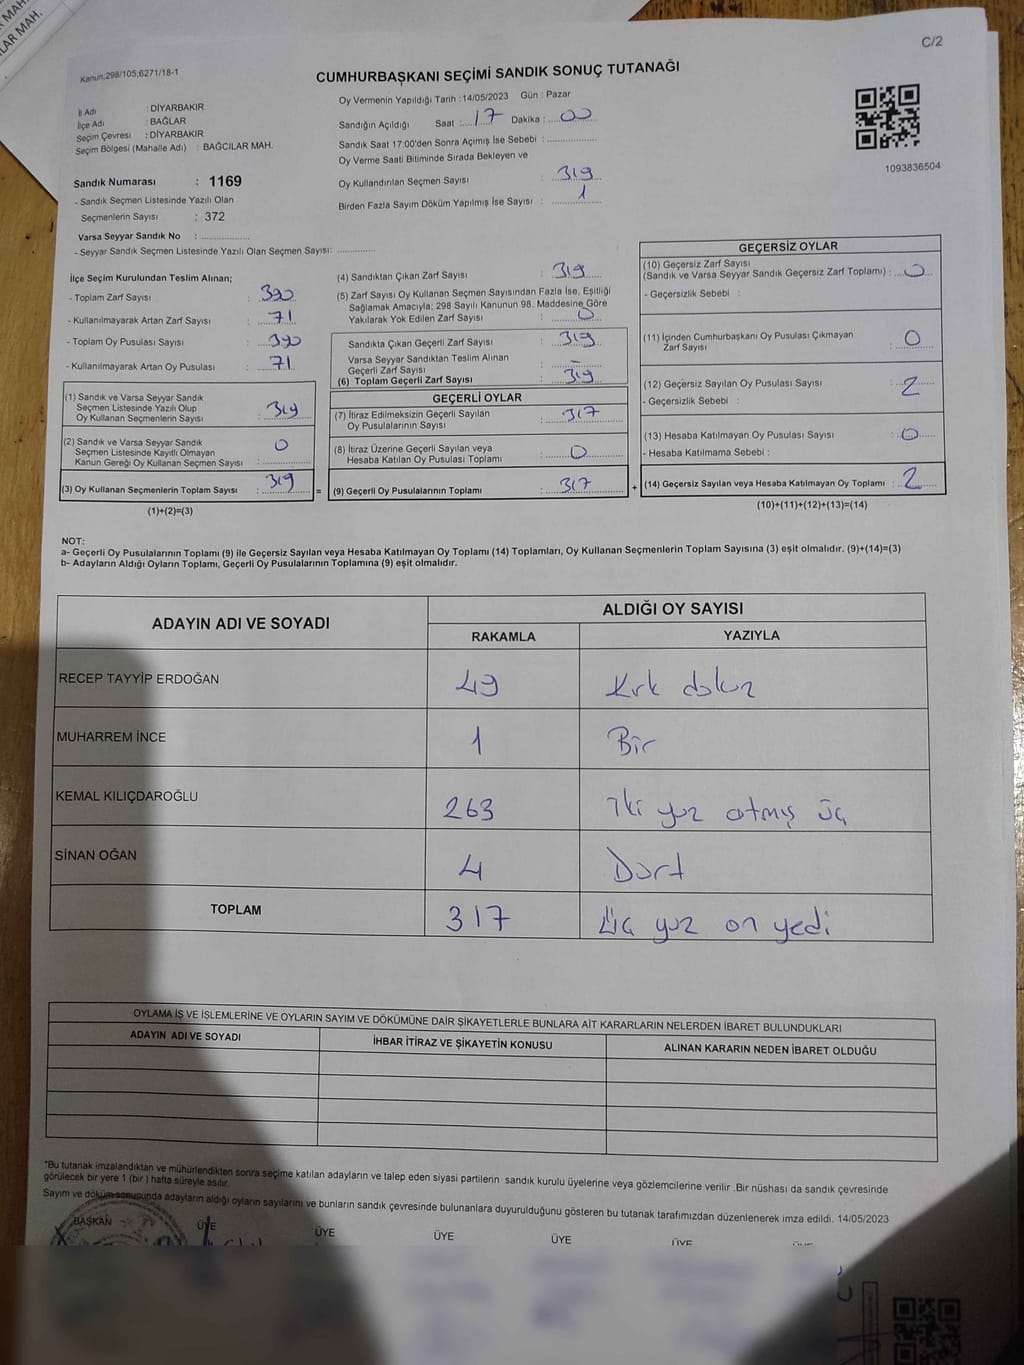 MAH.
LAR MAH.
C/2
Kanun;298/105;6271/18-1
CUMHURBAŞKANI SEÇİMİ SANDIK SONUÇ TUTANAĞI
İl Adı : DİYARBAKIR
İlçe Adı : BAĞLAR
Seçim Çevresi : DİYARBAKIR
Seçim Bölgesi (Mahalle Adı) : BAĞCILAR MAH.
Sandık Numarası : 1169
- Sandık Seçmen Listesinde Yazılı Olan
Seçmenlerin Sayısı : 372
Varsa Seyyar Sandık No : ..............
- Seyyar Sandık Seçmen Listesinde Yazılı Olan Seçmen Sayısı: ............
Oy Vermenin Yapıldığı Tarih : 14/05/2023 Gün : Pazar
Sandığın Açıldığı Saat : 17 Dakika : 00
Sandık Saat 17:00'den Sonra Açımış İse Sebebi : ..............
Oy Verme Saati Bitiminde Sırada Bekleyen ve
Oy Kullandırılan Seçmen Sayısı : 319
Birden Fazla Sayım Döküm Yapılmış İse Sayısı : 1
1093836504
İlçe Seçim Kurulundan Teslim Alınan;
- Toplam Zarf Sayısı : 390
- Kullanılmayarak Artan Zarf Sayısı : 71
- Toplam Oy Pusulası Sayısı : 390
- Kullanılmayarak Artan Oy Pusulası : 71
(1) Sandık ve Varsa Seyyar Sandık
Seçmen Listesinde Yazılı Olup
Oy Kullanan Seçmenlerin Sayısı : 319
(2) Sandık ve Varsa Seyyar Sandık
Seçmen Listesinde Kayıtlı Olmayan
Kanun Gereği Oy Kullanan Seçmen Sayısı : 0
(3) Oy Kullanan Seçmenlerin Toplam Sayısı : 319 =
(1)+(2)=(3)
(4) Sandıktan Çıkan Zarf Sayısı : 319
(5) Zarf Sayısı Oy Kullanan Seçmen Sayısından Fazla İse, Eşitliği
Sağlamak Amacıyla; 298 Sayılı Kanunun 98. Maddesine Göre
Yakılarak Yok Edilen Zarf Sayısı : 0
Sandıkta Çıkan Geçerli Zarf Sayısı : 319
Varsa Seyyar Sandıktan Teslim Alınan
Geçerli Zarf Sayısı : -
(6) Toplam Geçerli Zarf Sayısı : 319
GEÇERLİ OYLAR
(7) İtiraz Edilmeksizin Geçerli Sayılan
Oy Pusulalarının Sayısı : 317
(8) İtiraz Üzerine Geçerli Sayılan veya
Hesaba Katılan Oy Pusulası Toplamı : 0
(9) Geçerli Oy Pusulalarının Toplamı : 317 +
GEÇERSİZ OYLAR
(10) Geçersiz Zarf Sayısı
(Sandık ve Varsa Seyyar Sandık Geçersiz Zarf Toplamı) : 0
- Geçersizlik Sebebi :
(11) İçinden Cumhurbaşkanı Oy Pusulası Çıkmayan
Zarf Sayısı : 0
(12) Geçersiz Sayılan Oy Pusulası Sayısı : 2
- Geçersizlik Sebebi :
(13) Hesaba Katılmayan Oy Pusulası Sayısı : 0
- Hesaba Katılmama Sebebi :
(14) Geçersiz Sayılan veya Hesaba Katılmayan Oy Toplamı : 2
(10)+(11)+(12)+(13)=(14)
NOT:
a- Geçerli Oy Pusulalarının Toplamı (9) ile Geçersiz Sayılan veya Hesaba Katılmayan Oy Toplamı (14) Toplamları, Oy Kullanan Seçmenlerin Toplam Sayısına (3) eşit olmalıdır. (9)+(14)=(3)
b- Adayların Aldığı Oyların Toplamı, Geçerli Oy Pusulalarının Toplamına (9) eşit olmalıdır.
ADAYIN ADI VE SOYADI ALDIĞI OY SAYISI
RAKAMLA YAZIYLA
RECEP TAYYİP ERDOĞAN 49 Kırk dokuz
MUHARREM İNCE 1 Bir
KEMAL KILIÇDAROĞLU 263 iki yuz atmış üç
SİNAN OĞAN 4 Dort
TOPLAM 317 Üç yuz on yedi
OYLAMA İŞ VE İŞLEMLERİNE VE OYLARIN SAYIM VE DÖKÜMÜNE DAİR ŞİKAYETLERLE BUNLARA AİT KARARLARIN NELERDEN İBARET BULUNDUKLARI
ADAYIN ADI VE SOYADI İHBAR İTİRAZ VE ŞİKAYETİN KONUSU ALINAN KARARIN NEDEN İBARET OLDUĞU
*Bu tutanak imzalandıktan ve mühürlendikten sonra seçime katılan adayların ve talep eden siyasi partilerin sandık kurulu üyelerine veya gözlemcilerine verilir .Bir nüshası da sandık çevresinde
görülecek bir yere 1 (bir ) hafta süreyle asılır.
Sayım ve döküm sonucunda adayların aldığı oyların sayılarını ve bunların sandık çevresinde bulunanlara duyurulduğunu gösteren bu tutanak tarafımızdan düzenlenerek imza edildi. 14/05/2023
BAŞKAN ÜYE ÜYE ÜYE ÜYE ÜYE